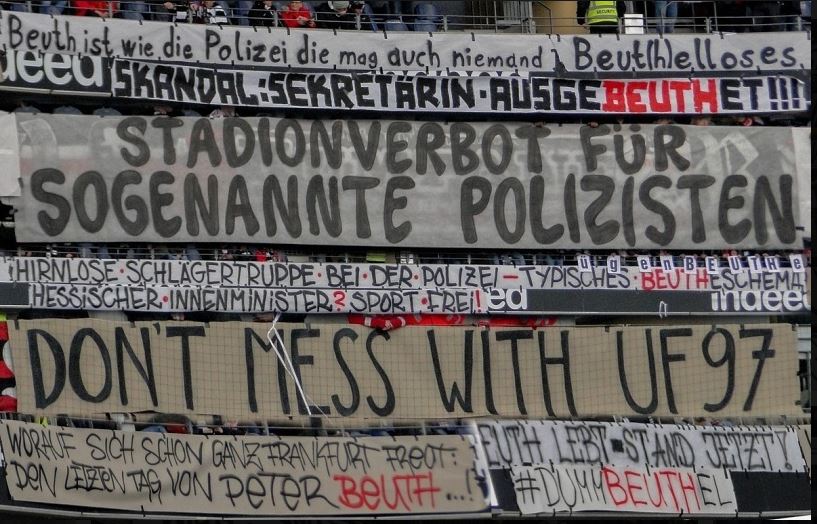 Beuth ist wie die Polizei die mag auch niemand
Beut(h)elloses
deed SKANDAL:SEKRETÄRIN·AUSGEBEUTHET!!!!
STADIONVERBOT FÜR
SOGENANNTE POLIZISTEN
ügenBEUTHe
HIRNLOSE·SCHLÄGERTRUPPE BEI·DER·POLIZEI–TYPISCHES·BEUTHESCHEMA
HESSISCHER·INNENMINISTER? SPORT·FREI! ed indeed
DON'T MESS WITH UF97
WORAUF SICH SCHON GANZ FRANKFURT FREUT:
DEN LETZEN TAG VON PETER BEUTH...!
EUTH LEBT STAND JETZT!
#DUMMBEUTHEL